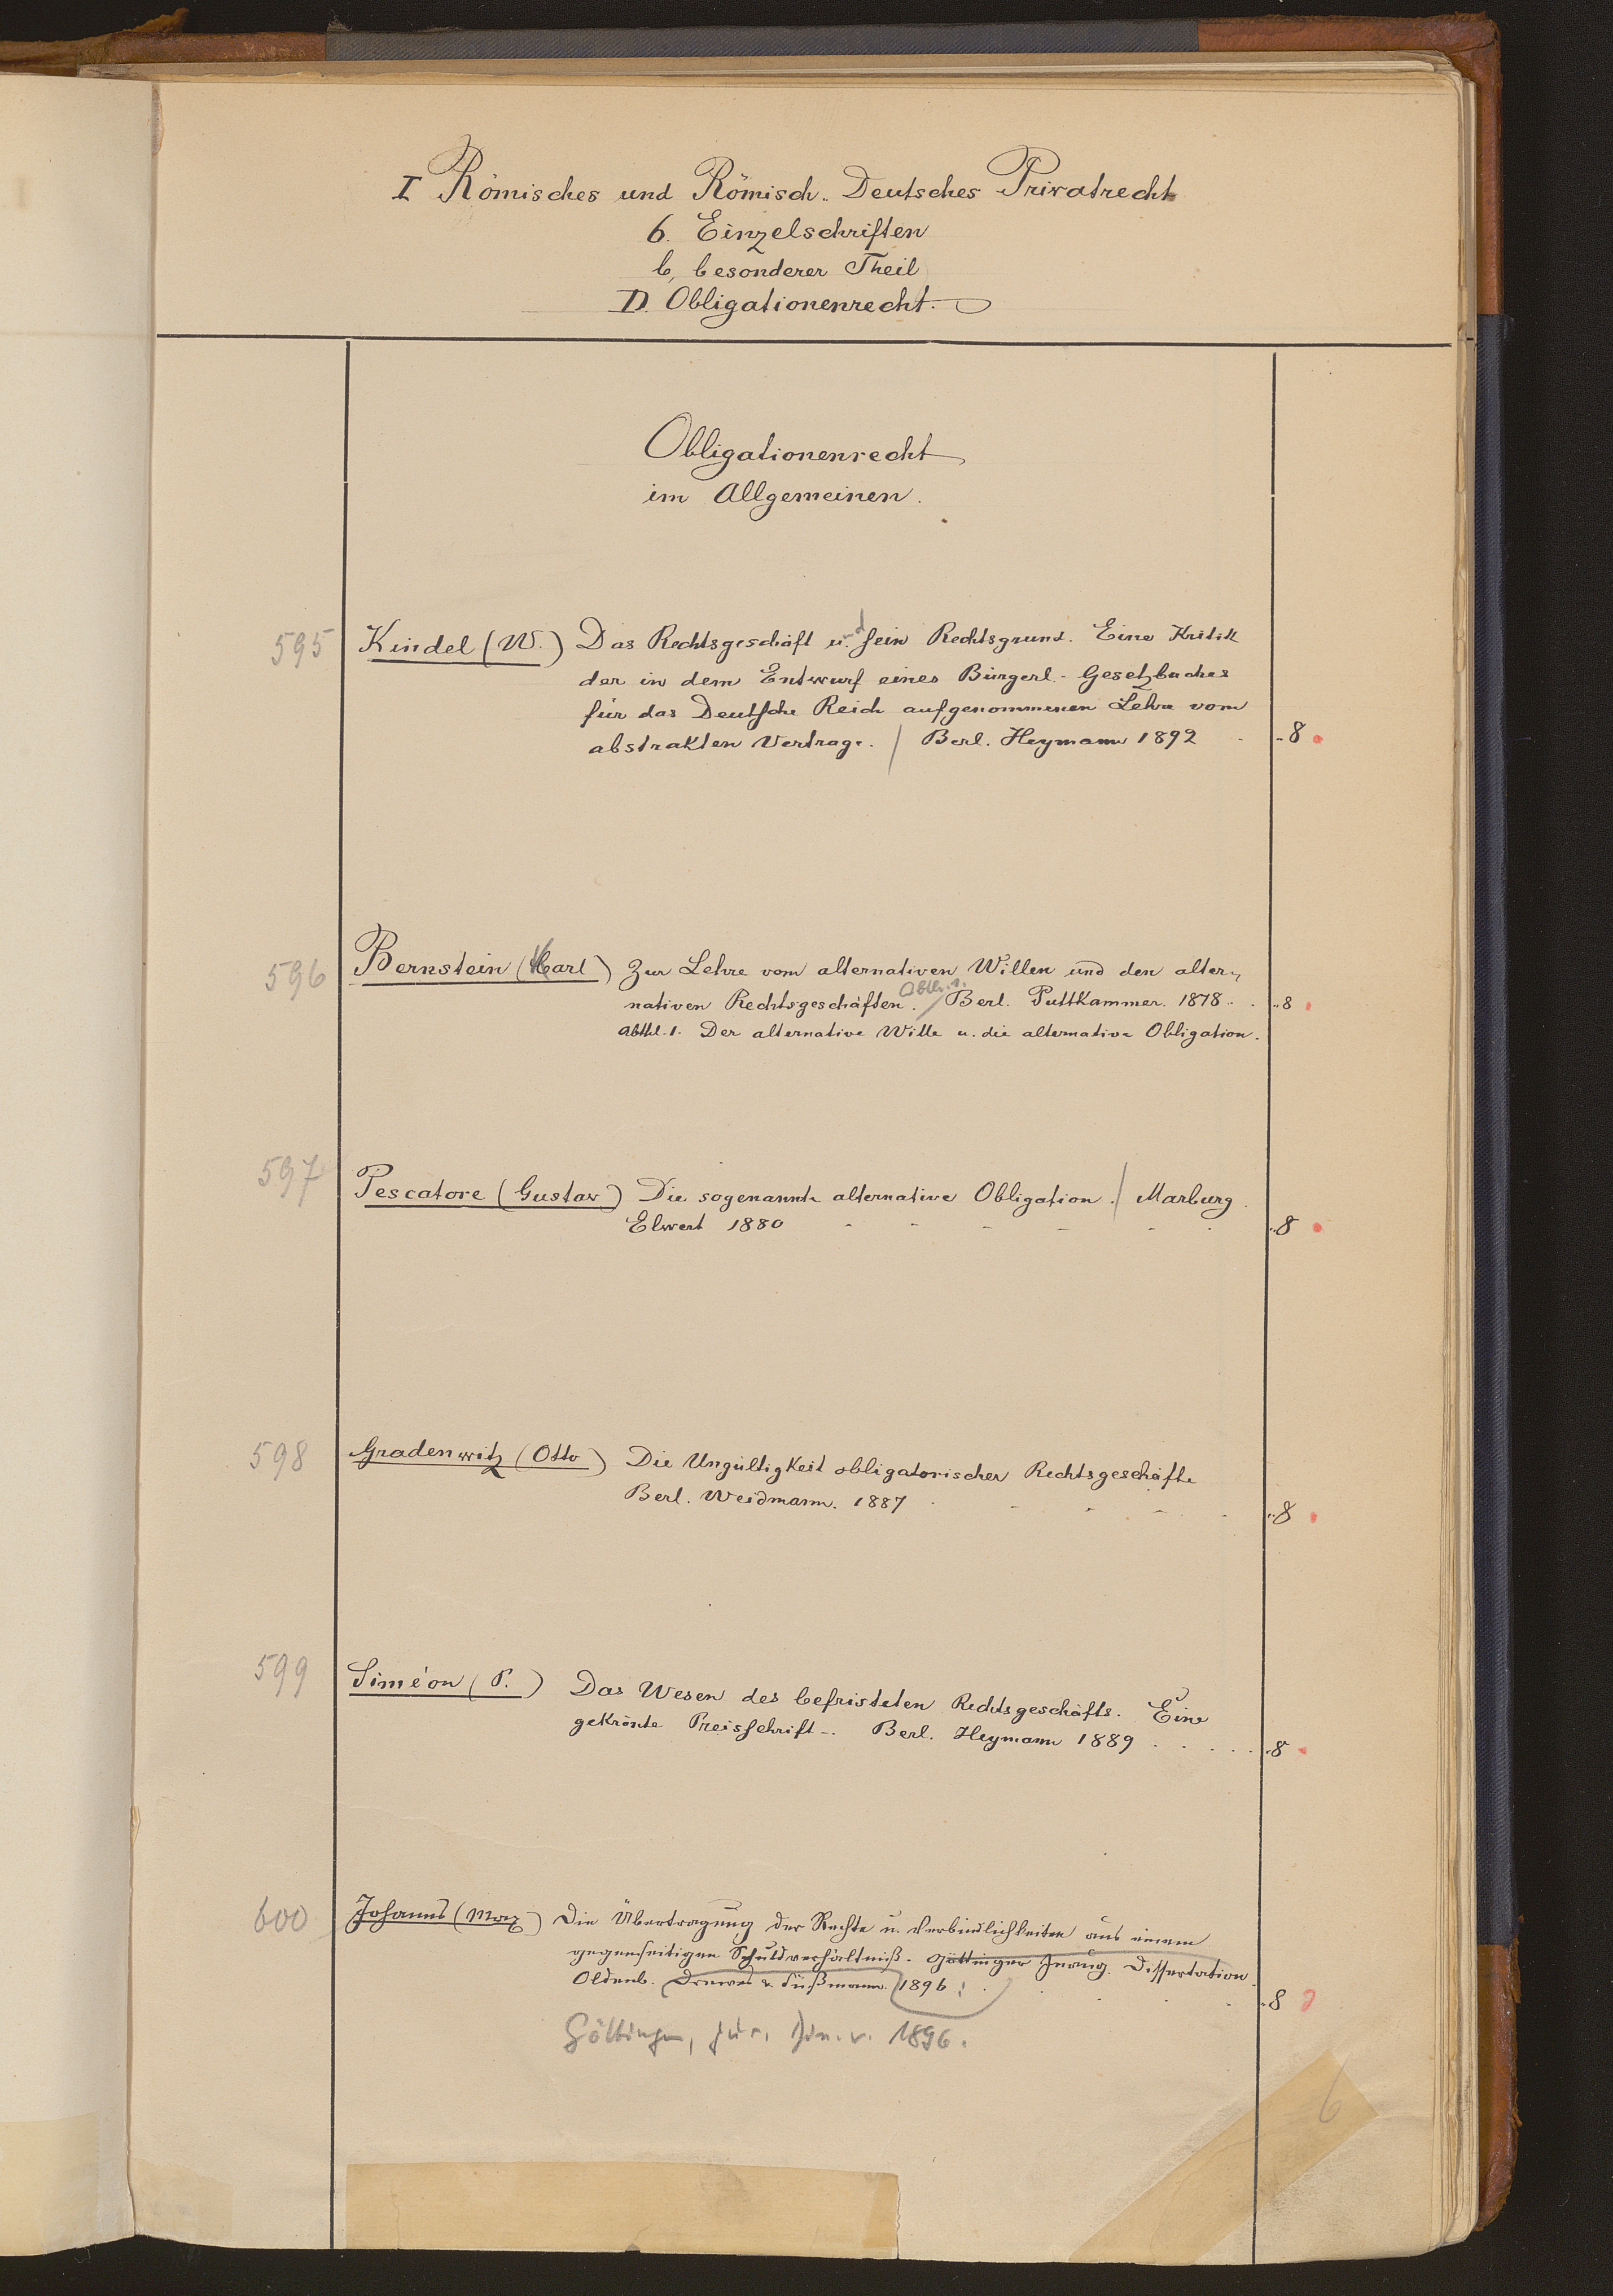 I Römisches und Römisch-Deutsches Privatrecht
6. Einzelschriften
b, besonderer Theil
D. Obligationenrecht.
Obligationenrecht
im Allgemeinen.
595 Kindel (W.) Das Rechtsgeschäft und sein Rechtsgrund. Eine Kritik
der in dem Entwurf eines Bürgerl. Gesetzbuches
für das Deutsche Reich aufgenommenen Lehre vom
abstrakten Vertrage. / Berl. Heymann 1892 8
596 Bernstein (Karl) Zur Lehre vom alternativen Willen und den alter-
nativen Rechtsgeschäften. Abth. 1. / Berl. Puttkammer. 1878 8
Abthl. 1. Der alternative Wille u. die alternative Obligation.
597 Pescatore (Gustav) Die sogenannte alternative Obligation. / Marburg
Elwert 1880 8
598 Gradenwitz (Otto) Die Ungültigkeit obligatorischer Rechtsgeschäfte
Berl. Weidmann. 1887 8
599 Siméon (P.) Das Wesen des befristeten Rechtsgeschäfts. Eine
gekrönte Preisschrift -. Berl. Heymann 1889 8
600 Johanns (Max) Die Übertragung der Rechte u. Verbindlichkeiten aus einem
gegenseitigen Schuldverhältniß. Göttinger Inaug. Dissertation.
Oldenb. Drewes & Süßmann. 1896 8
Göttingen, jur. Diss. v. 1896.
6